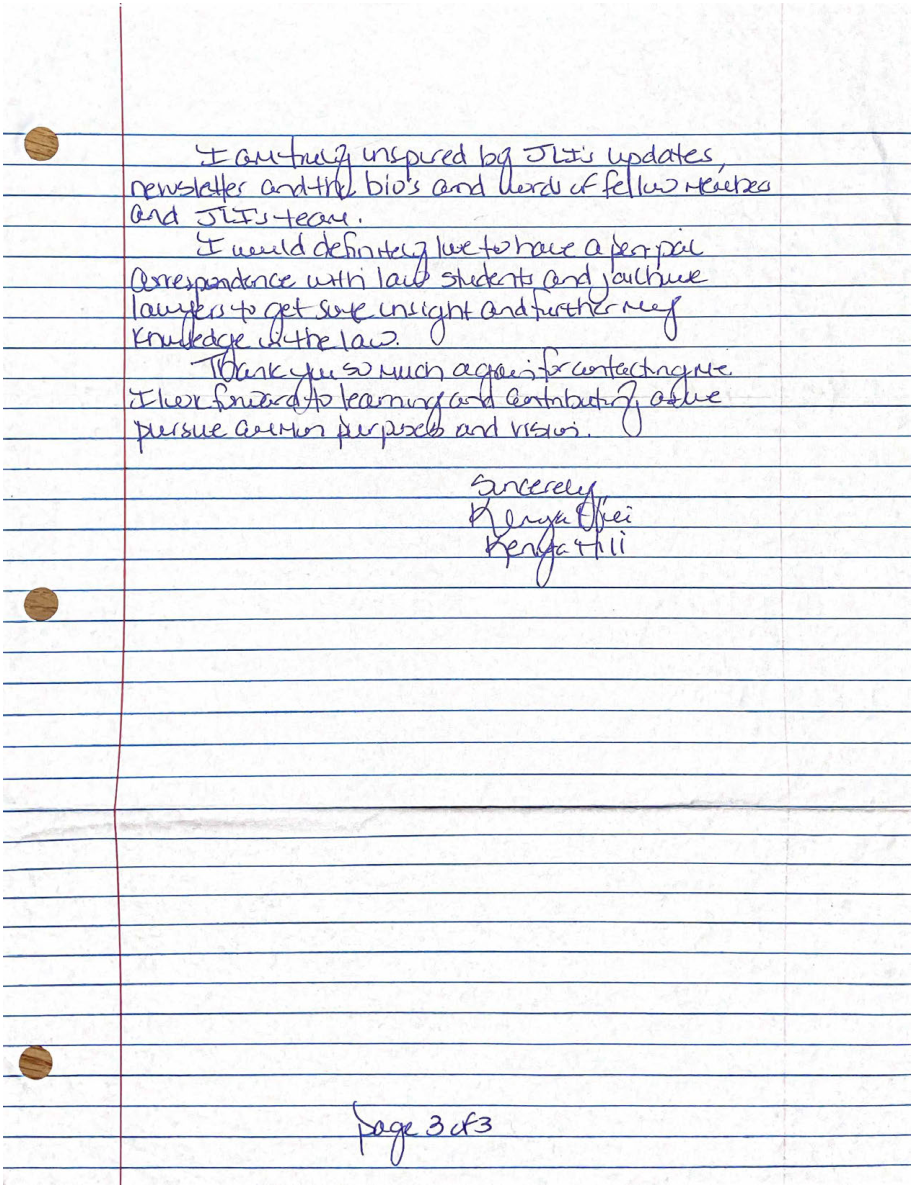 I am truly inspired by JLI's updates,
newsletter and the bio's and words of fellow members
and JLI's team.
I would definitely love to have a pen pal
correspondence with law students and jailhouse
lawyers to get some insight and further my
knowledge in the law.
Thank you so much again for contacting me.
I look forward to learning and contributing as we
pursue common purposes and vision.
Sincerely,
Kenya
Kenya Hill
page 3 of 3